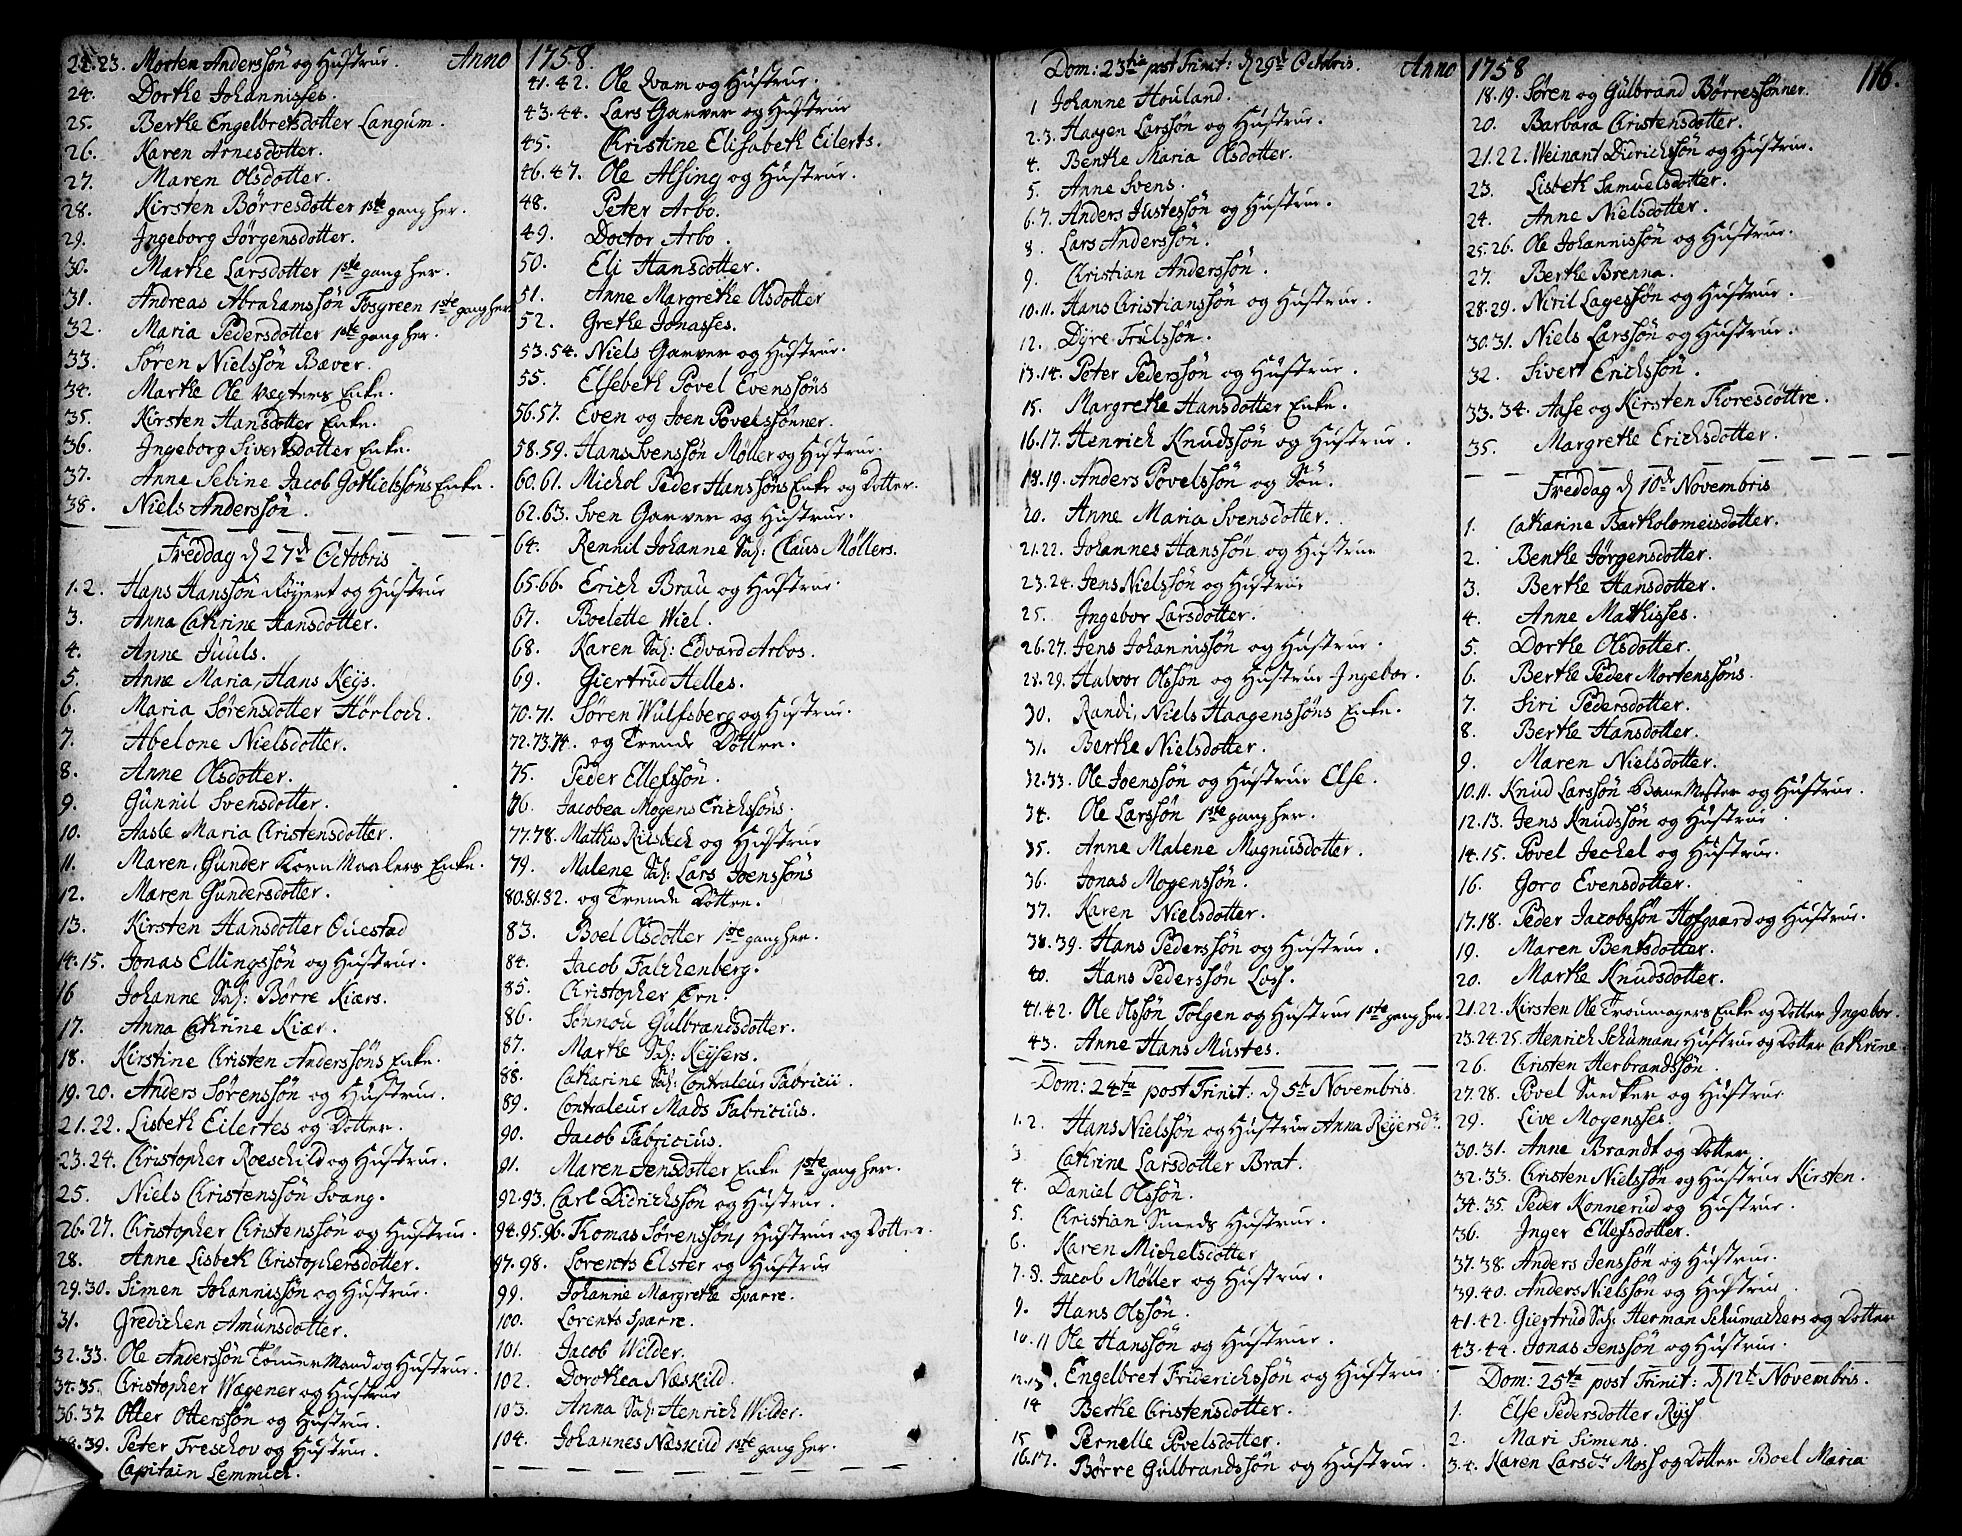 Anno 1758.
22.23. Morten Anderssön og Hustrue.
24. Dorthe Johannisses.
25. Berthe Engelbretsdotter Langum.
26. Karen Arnesdotter.
27. Maren Olsdotter.
28. Kirsten Börresdotter 1ste gang her.
29. Ingeborg Jörgensdotter.
30. Marthe Larsdotter 1ste gang her.
31. Andreas Abrahamssön Fosgreen 1ste gang her
32. Maria Pedersdotter 1ste gang her.
33. Sören Nielssön Bæver.
34. Marthe Ole Vegters Enke.
35. Kirsten Hansdotter Enke.
36. Ingeborg Sivertsdotter Enke.
37. Anne Sebine Jacob Gotlielssöns Enke.
38. Niels Anderssön.
Freddag d 27d Octobris
1.2. Hans Hanssön Röyert og Hustrue
3. Anna Cathrine Hansdotter.
4. Anne Juuls.
5. Anne Maria, Hans Keys.
6. Maria Sörensdotter Hörloch.
7. Abelone Nielsdotter.
8. Anne Olsdotter.
9. Gunnil Svensdotter.
10. Aasle Maria Christensdotter.
11. Maren, Gunder Korn Maalers Enke.
12. Maren Gundersdotter.
13. Kirsten Hansdotter Questad
14.15. Jonas Ellingssön og Hustrue.
16 Johanne Sal: Börre Kiærs.
17. Anna Cathrine Kiær.
18. Kirstine Christen Anderssöns Enke.
19.20. Anders Sörenssön og Hustrue.
21.22. Lisbeth Eilertes og Dotter.
23.24. Christopher Roeschild og Hustrue.
25. Niels Christenssön Svang.
26.27. Christopher Christenssön og Hustrue.
28. Anne Lisbeth Christophersdotter.
29.30. Simen Johannissön og Hustrue.
31. Gredichen Amunsdotter.
32.33. Ole Anderssön Tömmer Mand og Hustrue.
34.35. Christopher Wægener og Hustrue
36.37. Otter Otterssön og Hustrue.
38.39. Peter Treschov og Hustrue.
Capitain Lemmich.
41.42. Ole Qvam og Hustrue.
43.44. Lars Garver og Hustrue
45. Christine Elisabeth Eilerts.
46.47. Ole Alsing og Hustrue.
48. Peter Arbo.
49. Doctor Arbo.
50. Eli Hansdotter.
51. Anne Margrethe Olsdotter
52. Grethe Jonasses.
53.54. Niels Garver og Hustrue.
55. Elsebeth Povel Evenssöns
56.57. Even og Joen Povelssönner.
58.59. Hans Svenssön Möller og Hustrue.
60.61. Michol Peder Hanssöns Enke og Dotter.
62.63. Sven Garver og Hustrue.
64. Rennil Johanne Sal: Claus Möllers.
65.66. Erich Brau og Hustrue
67. Boelette Wiel.
68. Karen Sal: Edvard Arbos.
69. Giertrud Helles.
70.71. Sören Wulfsberg og Hustrue.
72.73.74. og Trende Döttre.
75. Peder Ellefssön.
76. Jacobea Mogens Erichssöns.
77.78. Mathis Riisbech og Hustrue
79. Malene Sal: Lars Joenssöns
80.81.82. og Trende Döttre.
83. Boel Olsdotter 1ste gang her.
84. Jacob Falchenberg.
85. Christopher Ern:
86. Sönnou Gulbrandsdotter.
87. Marthe Sal: Keysers.
88. Catharine Sal: Contraleur Fabricii.
89. Contraleur Mads Fabricius.
90. Jacob Fabricius.
91. Maren Jensdotter Enke 1ste gang her.
92.93. Carl Didrichssön og Hustrue.
94.95.96. Thomas Sörenssön, Hustrue og Dotter.
97.98. Lorents Elster og Hustrue
99. Johanne Margrethe Sparre.
100. Lorents Sparre.
101. Jacob Wilder.
102. Dorothea Næskild.
103. Anna Sal: Henrich Wilder.
104. Johannes Næskild 1ste gang her.
Dom: 23tia post Trinit: d 29d Octobris. Anno 1758 116.
1 Johanne Houland.
2.3. Haagen Larssön og Hustrue.
4. Benthe Maria Olsdotter.
5. Anne Svens.
6.7. Anders Justessön og Hustrue.
8. Lars Anderssön.
9. Christian Anderssön.
10.11. Hans Christianssön og Hustrue.
12. Dyre Trulssön.
13.14. Peter Pederssön og Hustrue.
15. Margrethe Hansdotter Enke.
16.17. Henrich Knudssön og Hustrue.
18.19. Anders Povelssön og Sön.
20. Anne Maria Svensdotter.
21.22. Johannes Hanssön og Hustrue
23.24. Jens Nielssön og Hustrue
25. Ingebor Larsdotter.
26.27. Jens Johannissön og Hustrue.
28.29. Halvor Olssön og Hustrue Ingebor.
30. Randi, Niels Haagenssöns Enke.
31. Berthe Nielsdotter.
32.33. Ole Joenssön og Hustrue Else.
34. Ole Larssön 1ste gang her.
35. Anne Malene Magnusdotter.
36. Jonas Mogenssön.
37. Karen Nielsdotter.
38.39. Hans Pederssön og Hustrue.
40. Hans Pederssön Losh.
41.42. Ole Olssön Tolgen og Hustrue 1ste gang her.
43. Anne Hans Mustes.
Dom: 24ta post Trinit: d 5t Novembris.
1.2. Hans Nielssön og Hustrue Anna Reyersdr.
3 Cathrine Larsdotter Brat.
4. Daniel Olssön.
5. Christian Smeds Hustrue.
6. Karen Michelsdotter
7.8. Jacob Möller og Hustrue.
9. Hans Olssön.
10.11 Ole Hanssön og Hustrue.
12.13. Engelbret Friderichssön og Hustrue
14 Berthe Christensdotter.
15 Pernelle Povelsdotter.
16.17. Börre Gulbrandssön og Hustrue.
18.19. Sören og Gulbrand Börressönner.
20. Barbara Christensdotter.
21.22. Weinant Didrichssön og Hustrue.
23. Lisbeth Samuelsdotter.
24. Anne Nielsdotter.
25.26. Ole Johannissön og Hustrue.
27. Berthe Brenna.
28.29. Niril Lagessön og Hustrue.
30.31. Niels Larssön og Hustrue.
32. Sivert Erichssön.
33.34. Aase og Kirsten Thoresdöttre.
35. Margrethe Erichsdotter.
Freddag d 10d Novembris
1. Catharine Bartholomeisdotter.
2. Benthe Jörgensdotter.
3. Berthe Hansdotter.
4. Anne Mathisses.
5. Dorthe Olsdotter.
6. Berthe Peder Mortenssöns.
7. Siri Pedersdotter.
8. Berthe Hansdotter.
9. Maren Nielsdotter.
10.11. Knud Larssön Bane Mester og Hustrue.
12.13. Jens Knudssön og Hustrue.
14.15. Povel Jechel og Hustrue.
16. Goro Evensdotter.
17.18. Peder Jacobssön Hofgaard og Hustrue.
19. Maren Bentsdotter.
20. Marthe Knudsdotter.
21.22. Kirsten Ole Trommagers Enke og Dotter Ingebor.
23.24.25. Henrich Schuman, Hustrue og Dotter Cathrine
26. Christen Herbrandssön.
27.28. Povel Snedker og Hustrue
29. Live Mogensses.
30.31. Anne Brandt og Dotter.
32.33. Christen Nielssön og Hustrue Kirsten.
34.35. Peder Konnerud og Hustrue.
36. Inger Ellefsdotter.
37.38. Anders Jenssön og Hustrue.
39.40. Anders Nielssön og Hustrue.
41.42. Giertrud Sal: Herman Schumachers og Dotter
43.44. Jonas Jenssön og Hustrue.
Dom: 25ta post Trinit: d 12t Novembris.
1. Else Pedersdotter Riis
2. Mari Simens.
3.4. Karen Larsdr Moss og Dotter Boel Maria